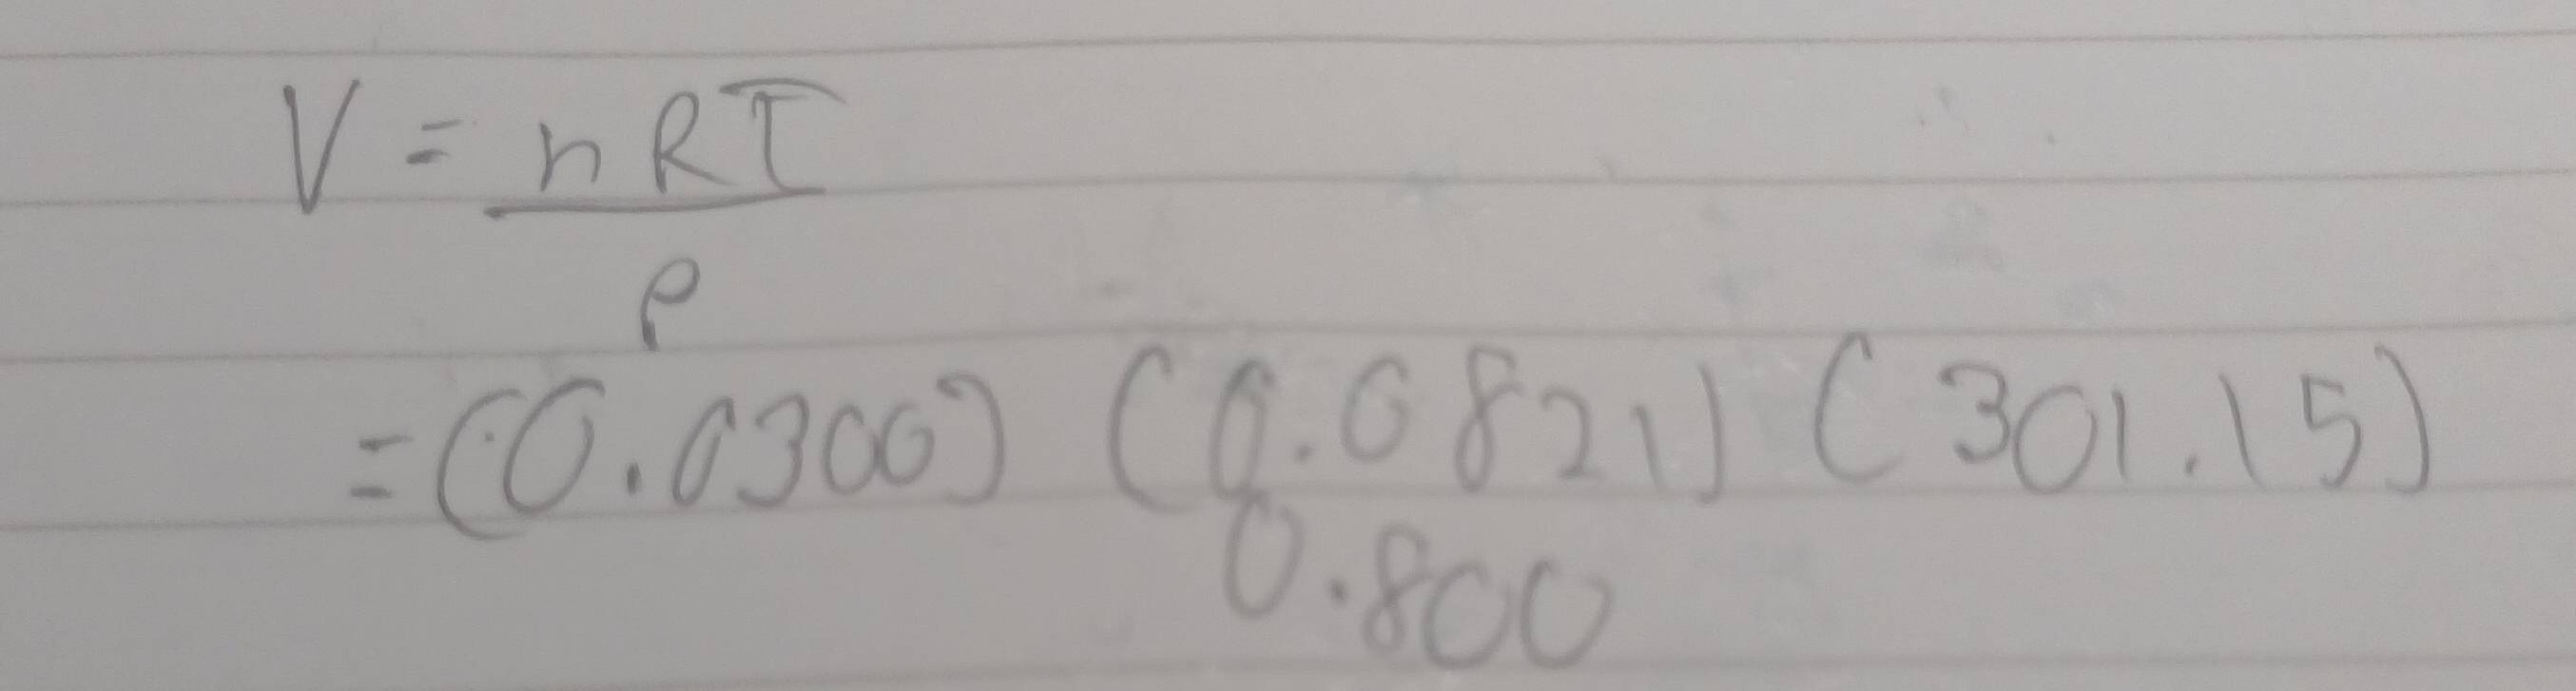 V = nRT
P
= (0.0300) (0.0821) (301.15)
0.800